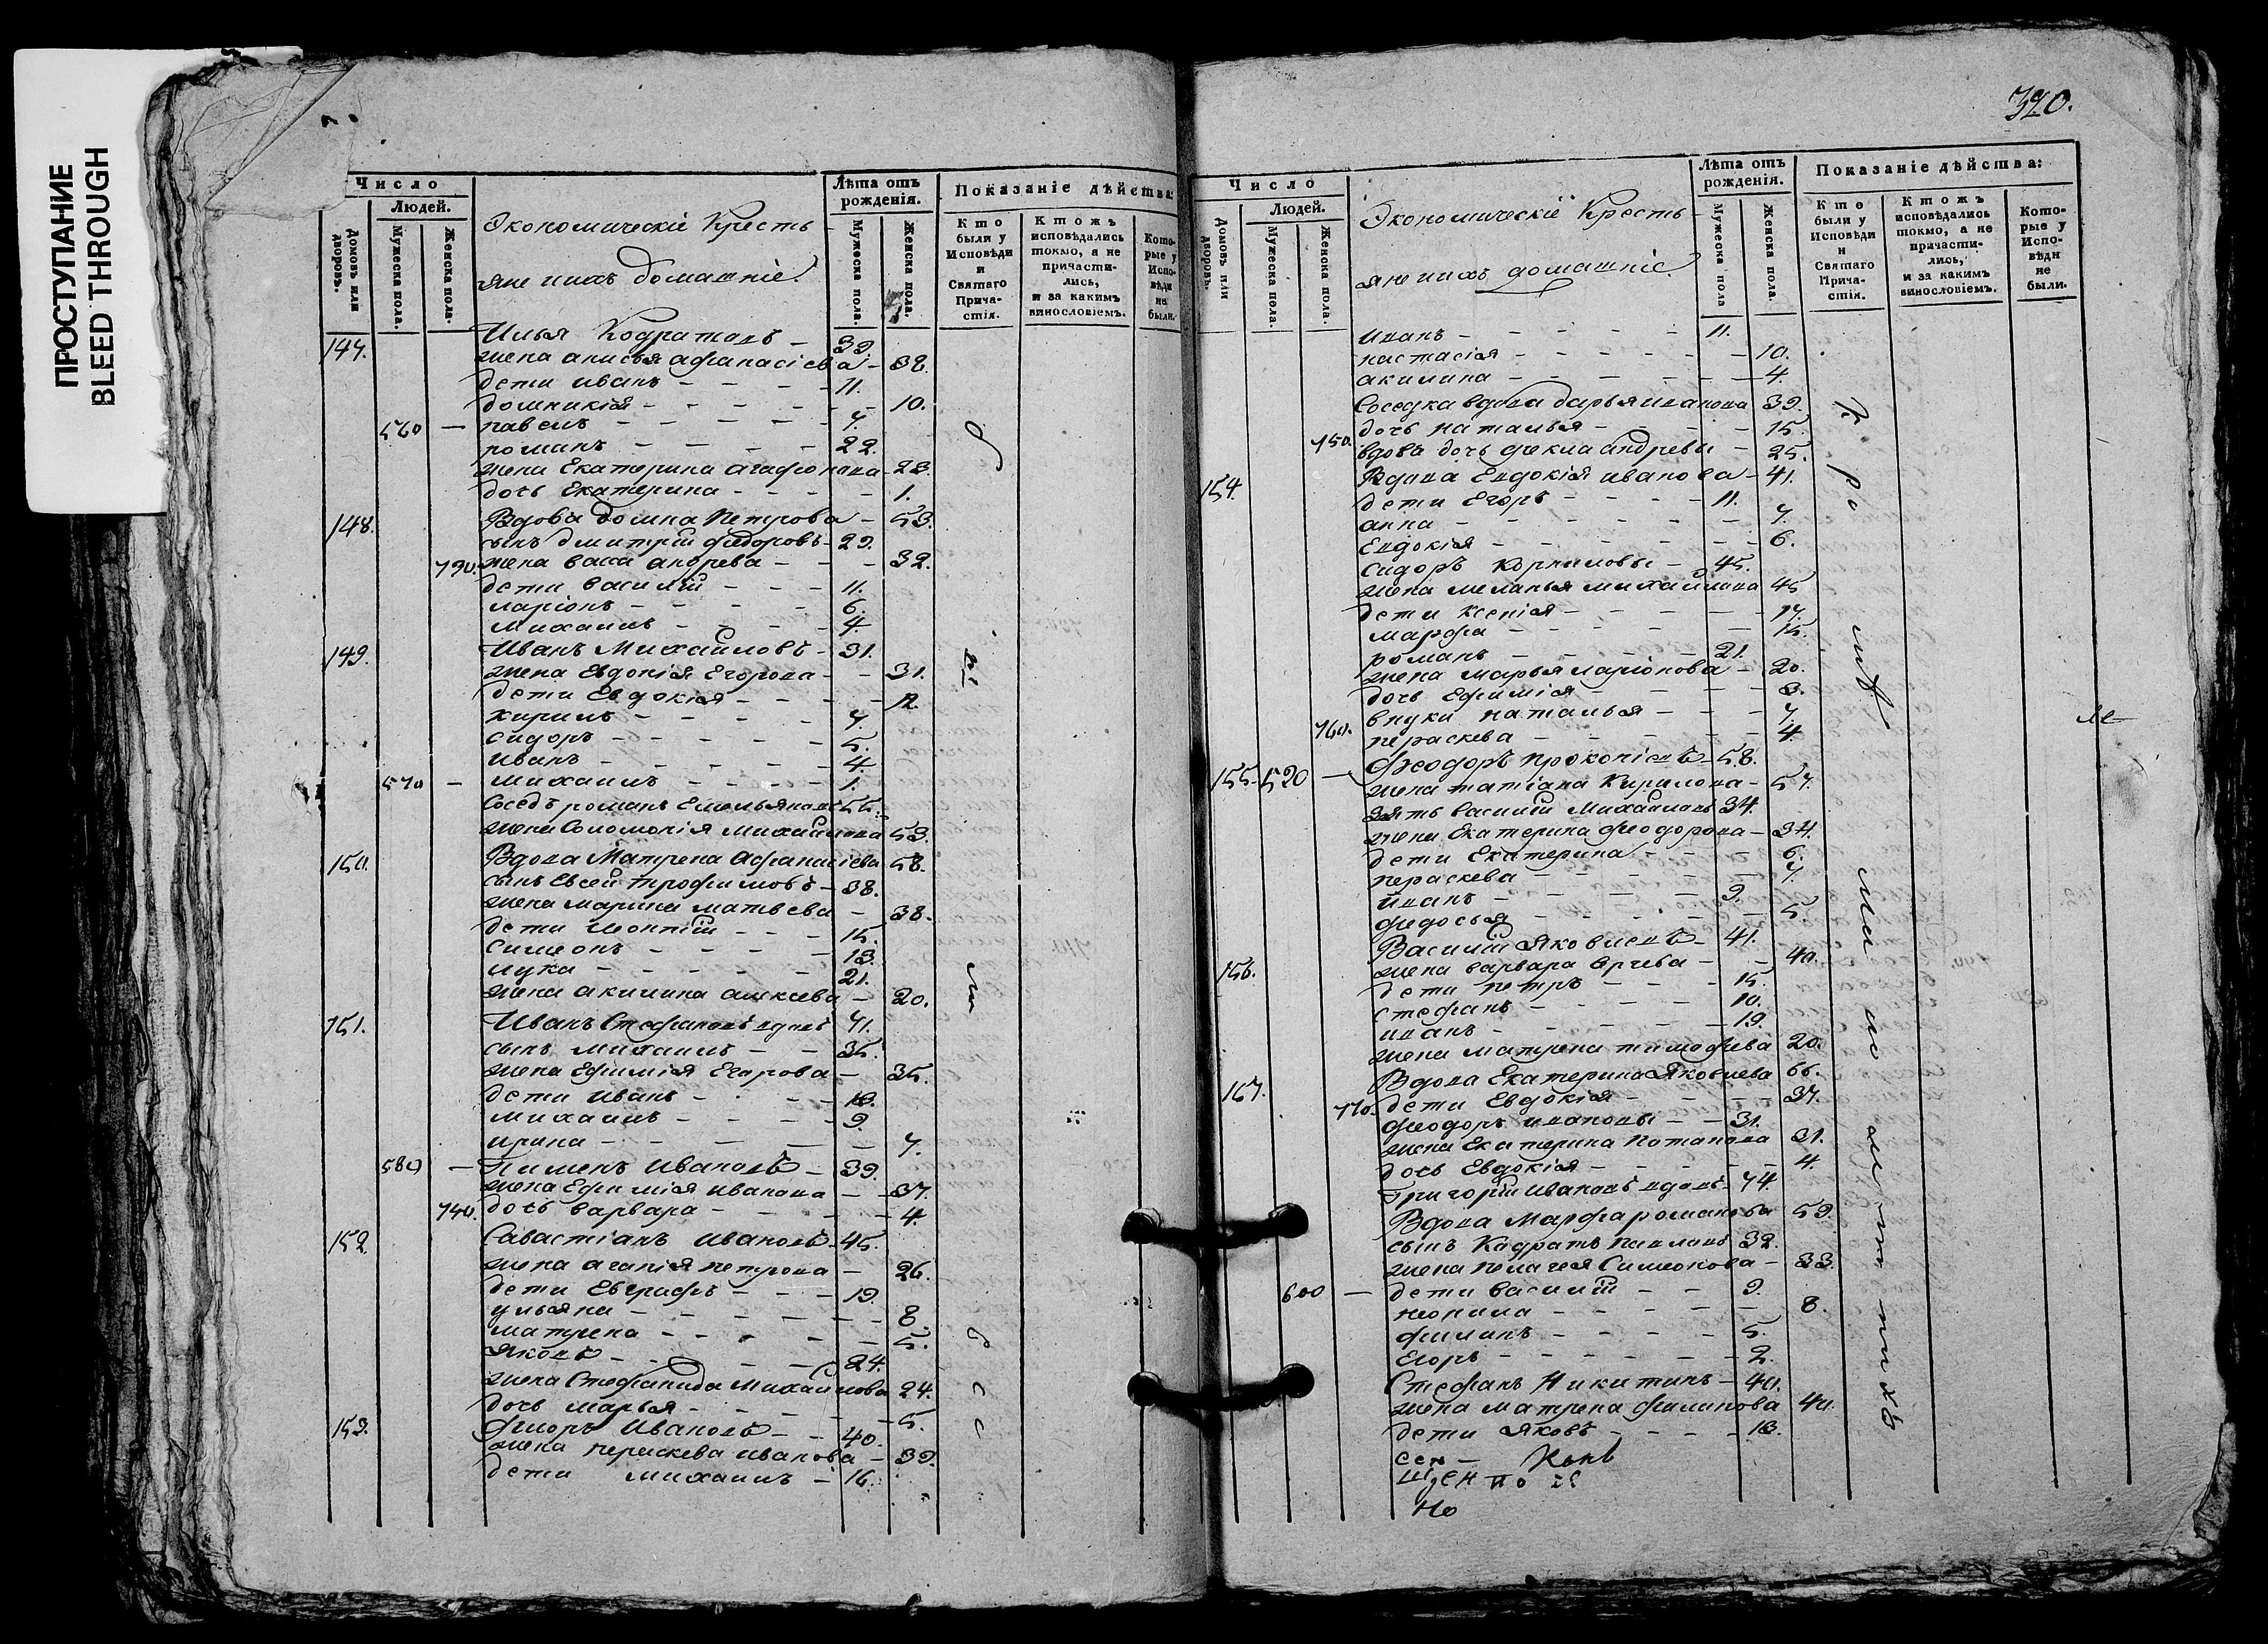 ПРОСТУПАНИЕ
BLEED THROUGH
Число
Людей.
Домовъ или дворовъ.
Мужеска пола.
Женска пола.
Экономическіе Кресть-
яне ихъ домашніе.
Лѣта отъ рожденія.
Мужеска пола.
Женска пола.
Показаніе дѣйства:
Кто были у Исповѣди и Святаго Причастія.
Ктожъ исповѣдались токмо, а не причастились, и за какимъ винословіемъ.
Которые у Исповѣди не были.
147. Илья Кодратовъ - 39.
жена анисья афанасіева - 38.
дети иванъ - 11.
домникія - 10.
560 - павелъ - 7.
романъ - 22.
жена Екатерина агафонова - 23.
дочь Екатерина - 1.
148. Вдова домна Петрова - 53.
сынъ дмитрій федоровъ - 29.
730. жена васса андрева - 32.
дети василій - 11.
ларіонъ - 6.
михаилъ - 4.
149. Иванъ Михайловъ - 31.
жена Евдокія Егорова - 31.
дети Евдокія - 12.
кирилъ - 7.
сидоръ - 5.
иванъ - 4.
570 - михаилъ - 1.
Соседъ романъ Емельяновъ 55.
жена Соломонія михайлова 53.
150. Вдова Матрена Афанасіева 58.
сынъ Евсей трофимовъ - 38.
жена марина матвева - 38.
дети леонтій - 15.
симеонъ - 13.
лука - 21.
жена акилина алексева - 20.
151. Иванъ Стефановъ вдовъ 71.
сынъ михаилъ - 35.
жена Ефимія Егорова - 35.
дети иванъ - 13.
михаилъ - 9.
ирина - 7.
580 - Пименъ Ивановъ - 39.
жена Ефимія иванова - 37.
740. дочь варвара - 4.
152. Савастіанъ ивановъ - 45.
жена агапія петрова - 26.
дети Евграфъ - 19.
ульяна - 8.
матрена - 5.
яковъ - 24.
жена Стефанида Михайлова 24.
дочь марья - 5.
153. флоръ Ивановъ - 40.
жена пераскева иванова - 39.
дети михаилъ - 16.
320.
Число
Людей.
Домовъ или дворовъ.
Мужеска пола.
Женска пола.
Экономическіе Кресть-
яне ихъ домашніе.
Лѣта отъ рожденія.
Мужеска пола
Женска пола.
Показаніе дѣйства:
Кто были у Исповѣди и Святаго Причастія.
Ктожъ исповѣдались токмо, а не причастились, и за какимъ винословіемъ.
Которые у Исповѣди не были.
иванъ - 11.
настасія - 10.
акилина - 4.
Соседка вдова дарья иванова 39.
дочь наталья - 15.
750. вдова дочь фекла андревы - 25.
154. Вдова Евдокія иванова - 41.
дети Егоръ - 11.
анна - 7.
Евдокія - 6.
Сидоръ Корниловы - 45.
жена меланья михайлова 45
дети Ксенія - 17.
марфа - 15.
романъ - 21.
жена марья ларіонова - 20.
дочь Ефимія - 3.
внуки наталья - 7.
760. пераскева - 4.
155. 590 - феодоръ прокопіевъ - 58.
жена татіана Кирилова - 57.
зять василій михайловъ 34.
жена Екатерина феодорова - 34.
дети Екатерина - 6.
пераскева - 7.
иванъ - 9.
федосья - 5.
156. Василій Яковлевъ - 41.
жена варвара Сргева - 40.
дети петръ - 15.
стефанъ - 10.
иванъ - 19.
жена матрена тимофева 20.
157. Вдова Екатерина Яковлева 66.
770. дети Евдокія - 37.
феодоръ ивановы - 31.
жена Екатерина Потапова 31.
дочь Евдокія - 4.
Григорій Ивановъ вдовъ - 74.
Вдова Марфа романова 59.
сынъ Кодратъ Павловъ 32.
жена пелагея Симеонова - 33.
600 - дети василій - 9.
неонила - 8.
филипъ - 5.
Егоръ - 2.
Стефанъ Никитинъ - 40.
жена матрена филипова 40.
дети яковъ - 13.